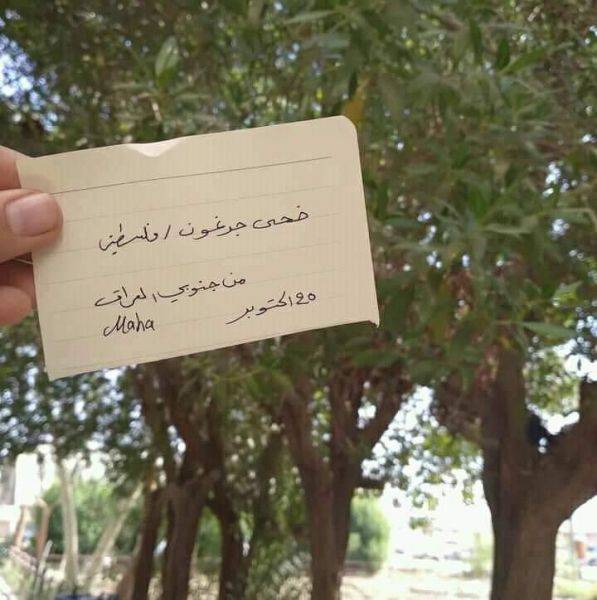 ضحى جدغون / فلسطين
من جنوبي العراق
٢٥ اكتوبر
Maha